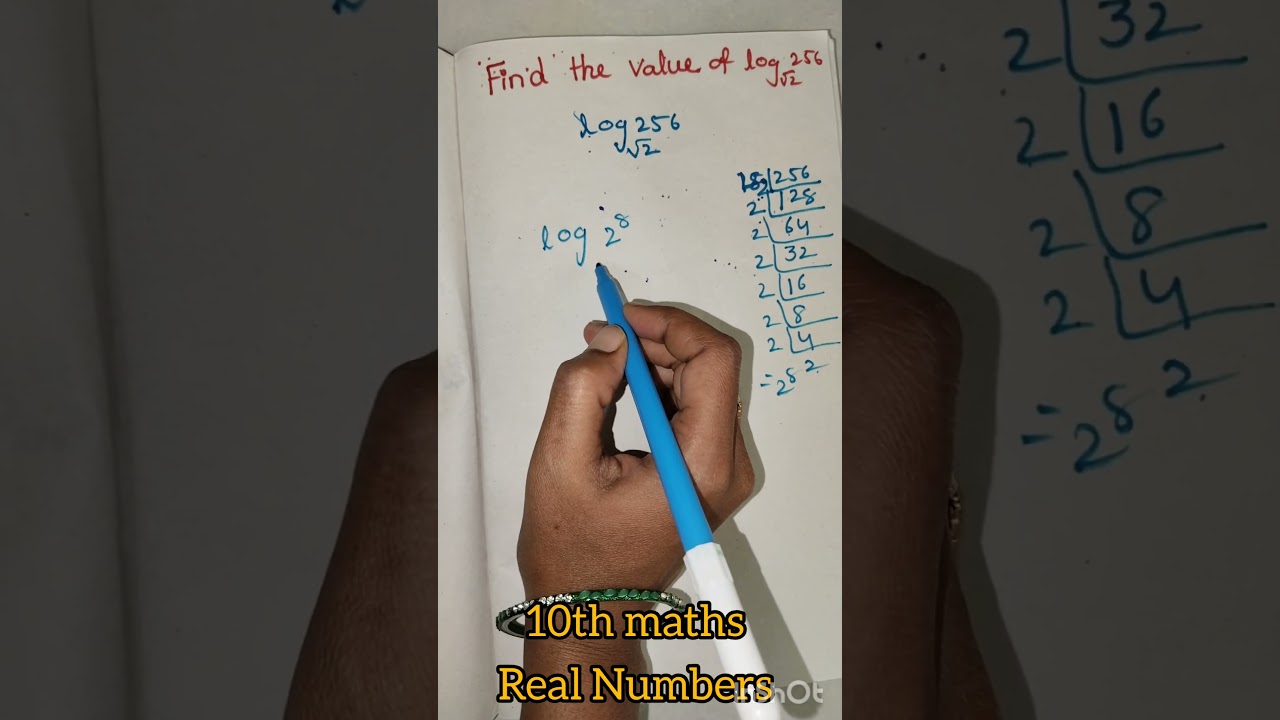 Find the value of log√2 256
log√2 256
log 2⁸
2 | 256
2 | 128
2 | 64
2 | 32
2 | 16
2 | 8
2 | 4
= 2⁸ 2
2 | 32
2 | 16
2 | 8
2 | 4
= 2⁸ 2
10th maths
Real Numbers